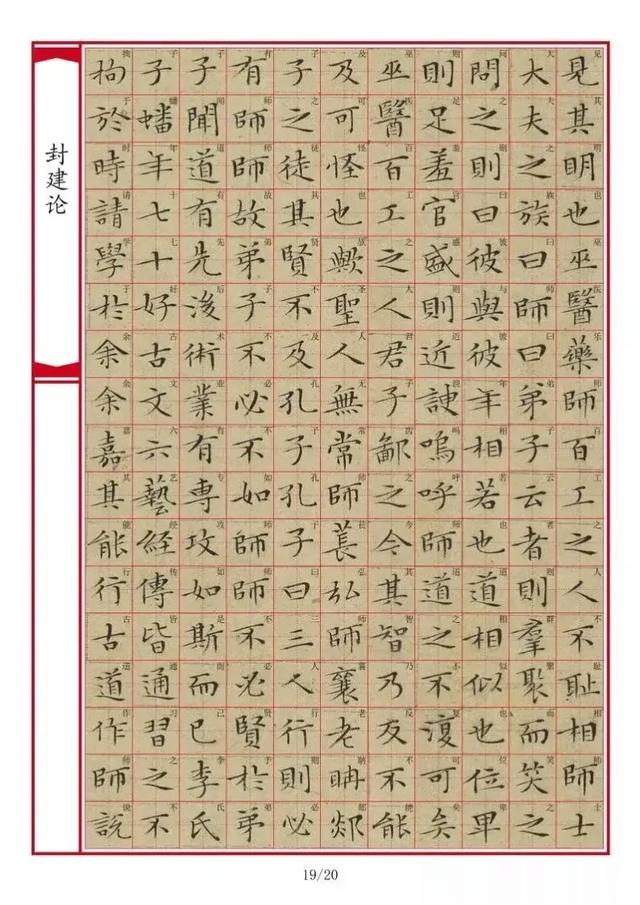 見其明也巫醫藥師百工之人不耻相師士
大夫之族曰師曰弟子云者則羣聚而笑之
問之則曰彼與彼年相若也道相似也位卑
則足羞官盛則近諛嗚呼師道之不復可矣
巫醫百工之人君子鄙之今其智乃反不能
及可怪也歟聖人無常師萇弘師襄老聃郯
子之徒其賢不及孔子孔子曰三人行則必
有師師故弟子不必不如師師不必賢於弟
子聞道有先後術業有專攻如斯而已李氏
子蟠年七十好古文六藝經傳皆通習之不
拘於時請學於余余嘉其能行古道作師說
封建论
19/20